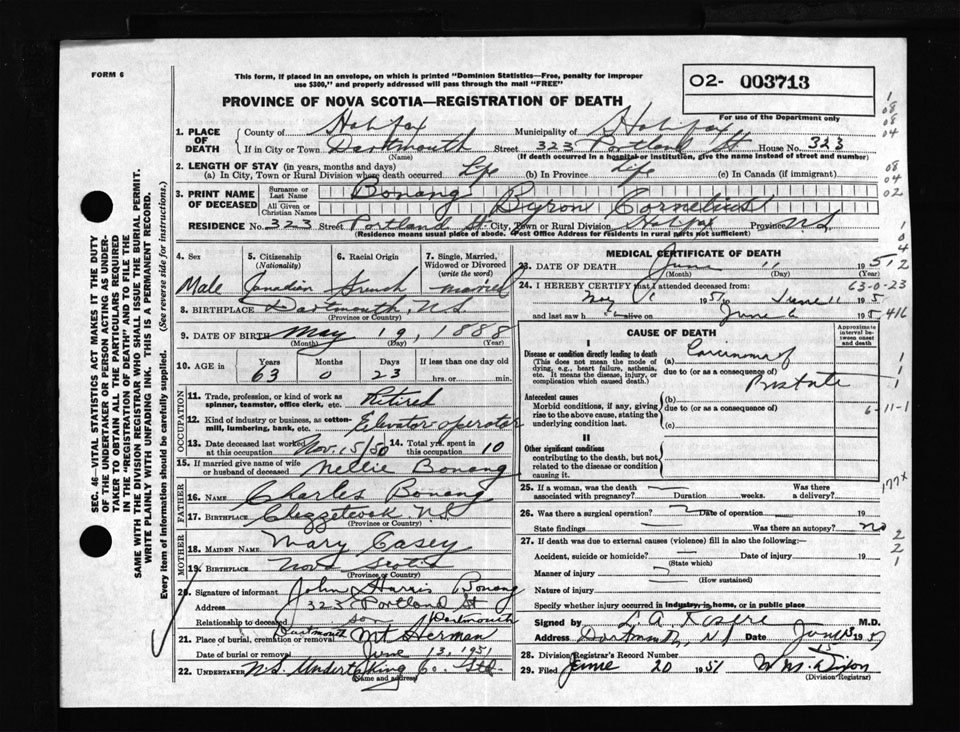 FORM 6
This form, if placed in an envelope, on which is printed "Dominion Statistics—Free, penalty for improper
use $300," and properly addressed will pass through the mail "FREE"
02- 003713
PROVINCE OF NOVA SCOTIA—REGISTRATION OF DEATH
For use of the Department only
1. PLACE OF DEATH
County of Halifax Municipality of Halifax
If in City or Town Dartmouth Street 323 Portland St House No. 323
(Name) (If death occurred in a hospital or institution, give the name instead of street and number)
2. LENGTH OF STAY (in years, months and days)
(a) In City, Town or Rural Division where death occurred Life (b) In Province Life (c) In Canada (if immigrant)
3. PRINT NAME OF DECEASED
Surname or Last Name Bonang
All Given or Christian Names Byron Cornelius
RESIDENCE No. 323 Street Portland St. City, Town or Rural Division Province N.S.
(Residence means usual place of abode. Post Office Address for residents in rural parts not sufficient)
4. Sex 5. Citizenship (Nationality) 6. Racial Origin 7. Single, Married, Widowed or Divorced (write the word)
Male Canadian French married
8. BIRTHPLACE Dartmouth, N.S.
(Province or Country)
9. DATE OF BIRTH May 19, 1888
(Month) (Day) (Year)
10. AGE IN Years Months Days If less than one day old
63 0 23 hrs. or min.
OCCUPATION
11. Trade, profession, or kind of work as spinner, teamster, office clerk, etc. Retired
12. Kind of industry or business, as cotton-mill, lumbering, bank, etc. Elevator operator
13. Date deceased last worked at this occupation Nov. 15/50 14. Total yrs. spent in this occupation 10
15. If married give name of wife or husband of deceased Nellie Bonang
FATHER
16. NAME Charles Bonang
17. BIRTHPLACE Chezzetcook N.S.
(Province or Country)
MOTHER
18. MAIDEN NAME Mary Casey
19. BIRTHPLACE Nova Scotia
(Province or Country)
20. Signature of informant John Harris Bonang
Address 323 Portland St
Relationship to deceased son Dartmouth
21. Place of burial, cremation or removal Dartmouth Mt Herman
Date of burial or removal June 13, 1951
22. UNDERTAKER N.S. Undertaking Co. Ltd.
(Name and address)
MEDICAL CERTIFICATE OF DEATH
23. DATE OF DEATH June 11 1951
(Month) (Day) (Year)
63-0-23
24. I HEREBY CERTIFY that I attended deceased from
1951 to June 11 195
and last saw h alive on June 6 195
416
CAUSE OF DEATH
Approximate interval between onset and death
I
Disease or condition directly leading to death (a) Carcinoma of
(This does not mean the mode of dying, e.g., heart failure, asthenia, etc. It means the disease, injury, or complication which caused death.
due to (or as a consequence of)
Prostate
Antecedent causes (b)
Morbid conditions, if any, giving rise to the above cause, stating the underlying condition last.
due to (or as a consequence of)
(c)
6-11-1
II
Other significant conditions
contributing to the death, but not related to the disease or condition causing it.
177x
25. If a woman, was the death associated with pregnancy? Duration weeks. Was there a delivery?
26. Was there a surgical operation? Date of operation 19
State findings Was there an autopsy? no
27. If death was due to external causes (violence) fill in also the following:—
Accident, suicide or homicide? Date of injury 19
(State which)
Manner of injury
(How sustained)
Nature of injury
Specify whether injury occurred in industry, in home, or in public place
Signed by M.D.
Address Dartmouth, NS Date June 13 1951
28. Division Registrar's Record Number
29. Filed June 20 1951 W. M. Dixon
(Division Registrar)
SEC. 46—VITAL STATISTICS ACT MAKES IT THE DUTY
OF THE UNDERTAKER OR PERSON ACTING AS UNDER-
TAKER TO OBTAIN ALL THE PARTICULARS REQUIRED
IN THE "REGISTRATION OF DEATH" AND TO FILE THE
SAME WITH THE DIVISION REGISTRAR WHO SHALL ISSUE THE BURIAL PERMIT.
WRITE PLAINLY WITH UNFADING INK. THIS IS A PERMANENT RECORD.
Every item of information should be carefully supplied. (See reverse side for instructions.)